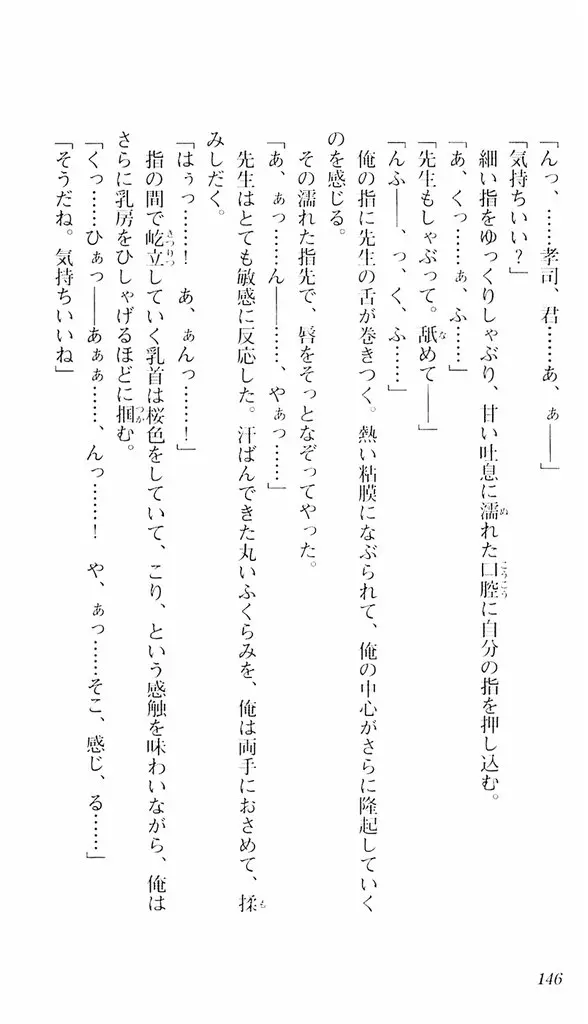 「んっ、……孝司、君……あ、ぁ――」
「気持ちいい？」
細い指をゆっくりしゃぶり、甘い吐息に濡れた口腔に自分の指を押し込む。
「あ、くっ……ぁ、ふ……」
「先生もしゃぶって。舐めて――」
「んふ――、っ、く、ふ……」
俺の指に先生の舌が巻きつく。熱い粘膜になぶられて、俺の中心がさらに隆起していく
のを感じる。
その濡れた指先で、唇をそっとなぞってやった。
「あ、ぁっ……ん――……、やぁっ……」
先生はとても敏感に反応した。汗ばんできた丸いふくらみを、俺は両手におさめて、揉
みしだく。
「はぅっ……！　あ、ぁんっ……！」
指の間で屹立していく乳首は桜色をしていて、こり、という感触を味わいながら、俺は
さらに乳房をひしゃげるほどに掴む。
「くっ……ひぁっ――あぁぁ……、んっ……！　や、ぁっ……そこ、感じ、る……」
「そうだね。気持ちいいね」
146